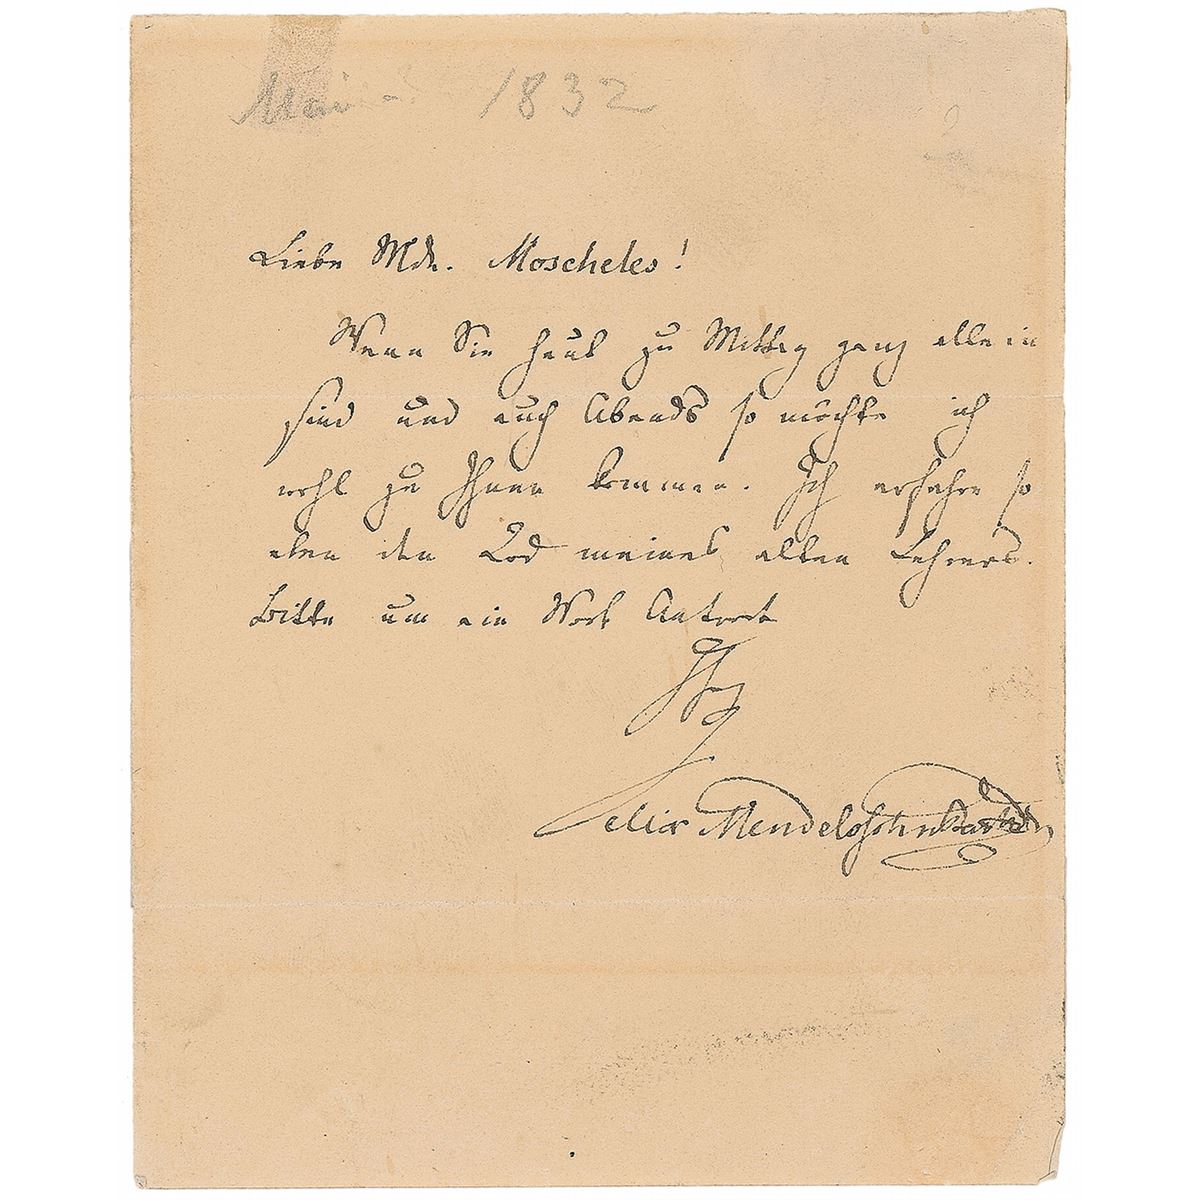 Mai - 1832
Liebe Mde. Moscheles!
Wenn Sie heut zu Mittag ganz allein
sind und auch Abends so möchte ich
wohl zu Ihnen kommen. Ich erfahre so
eben den Tod meines alten Lehrers.
Bitte um ein Wort Antwort
Ihr
Felix Mendelssohn Bartholdy